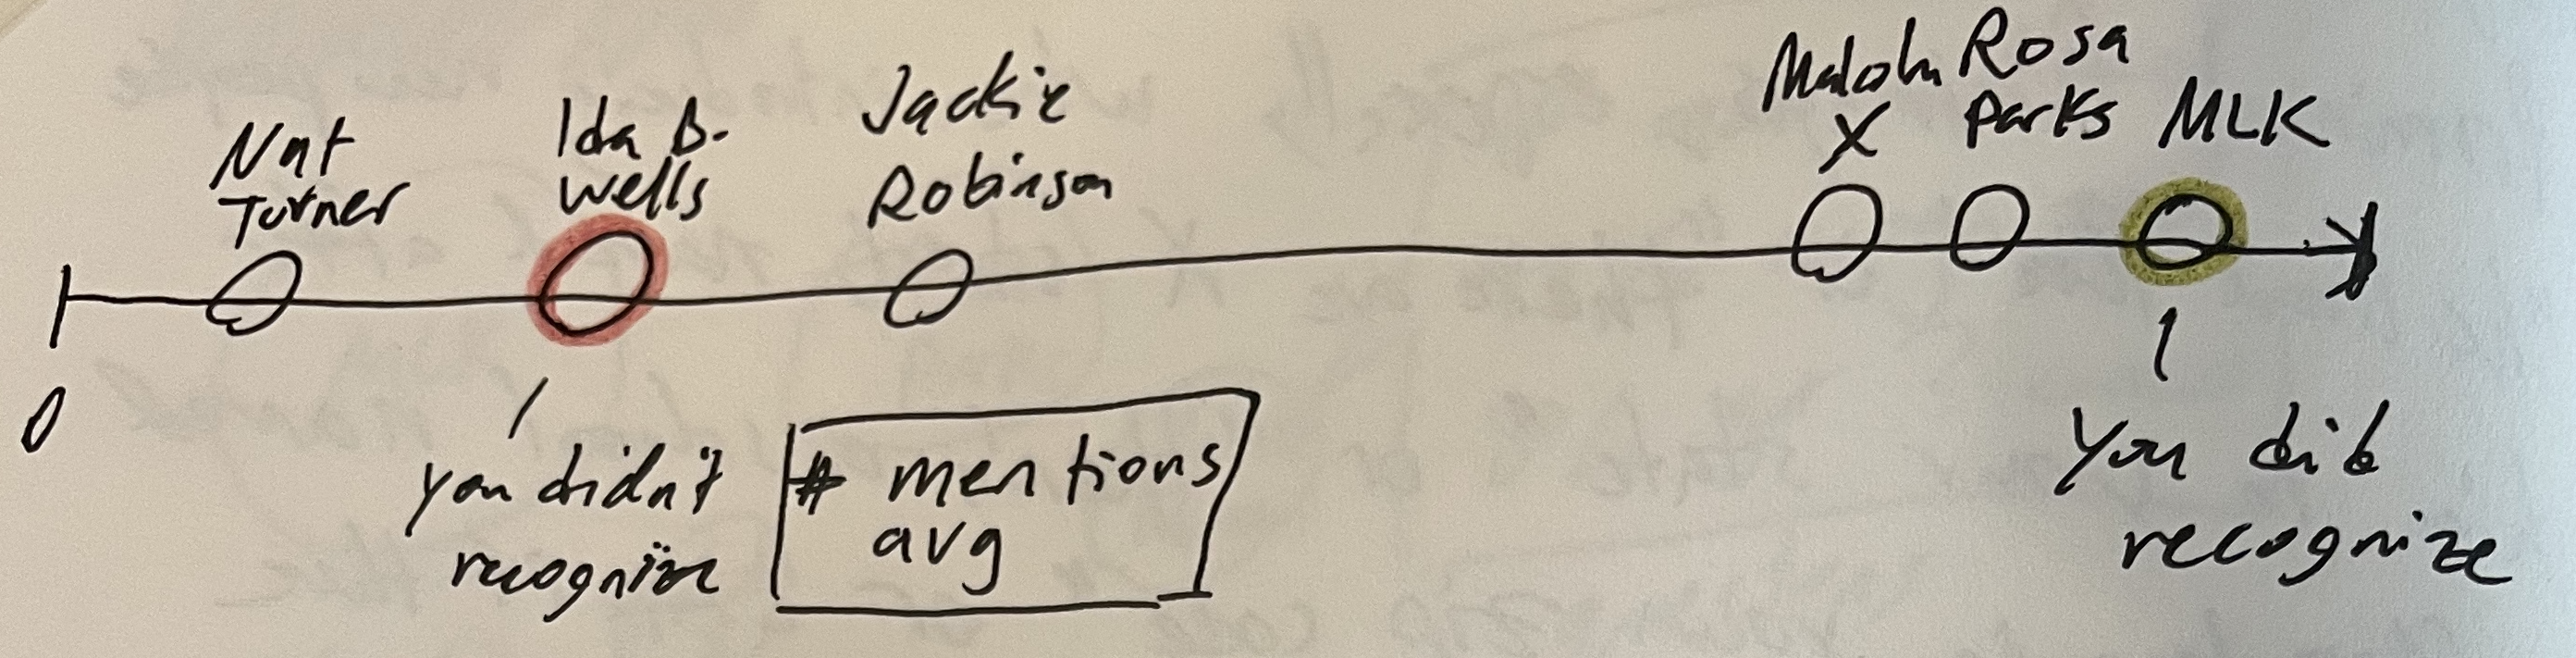 Nat
Turner
Ida B.
Wells
Jackie
Robinson
Malcolm
X
Rosa
Parks
MLK
0
you didn't
recognize
# mentions
avg
You did
recognize